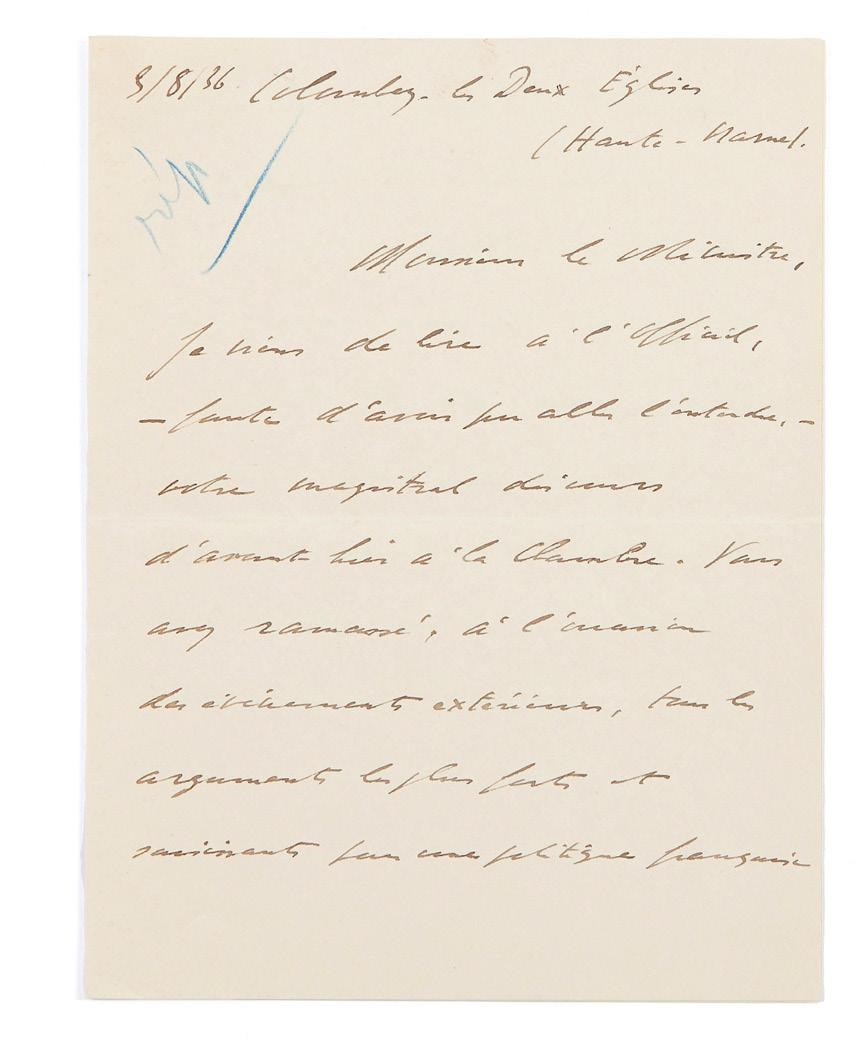 3/8/36 Colombey-les Deux Églises
(Haute-Marne).
rép
Monsieur le Ministre,
Je viens de lire à l'Officiel,
– faute d'avoir pu aller l'entendre, –
votre magistral discours
d'avant-hier à la Chambre. Vous
avez ramassé, à l'occasion
des événements extérieurs, tous les
arguments les plus forts et
saisissants pour une politique française